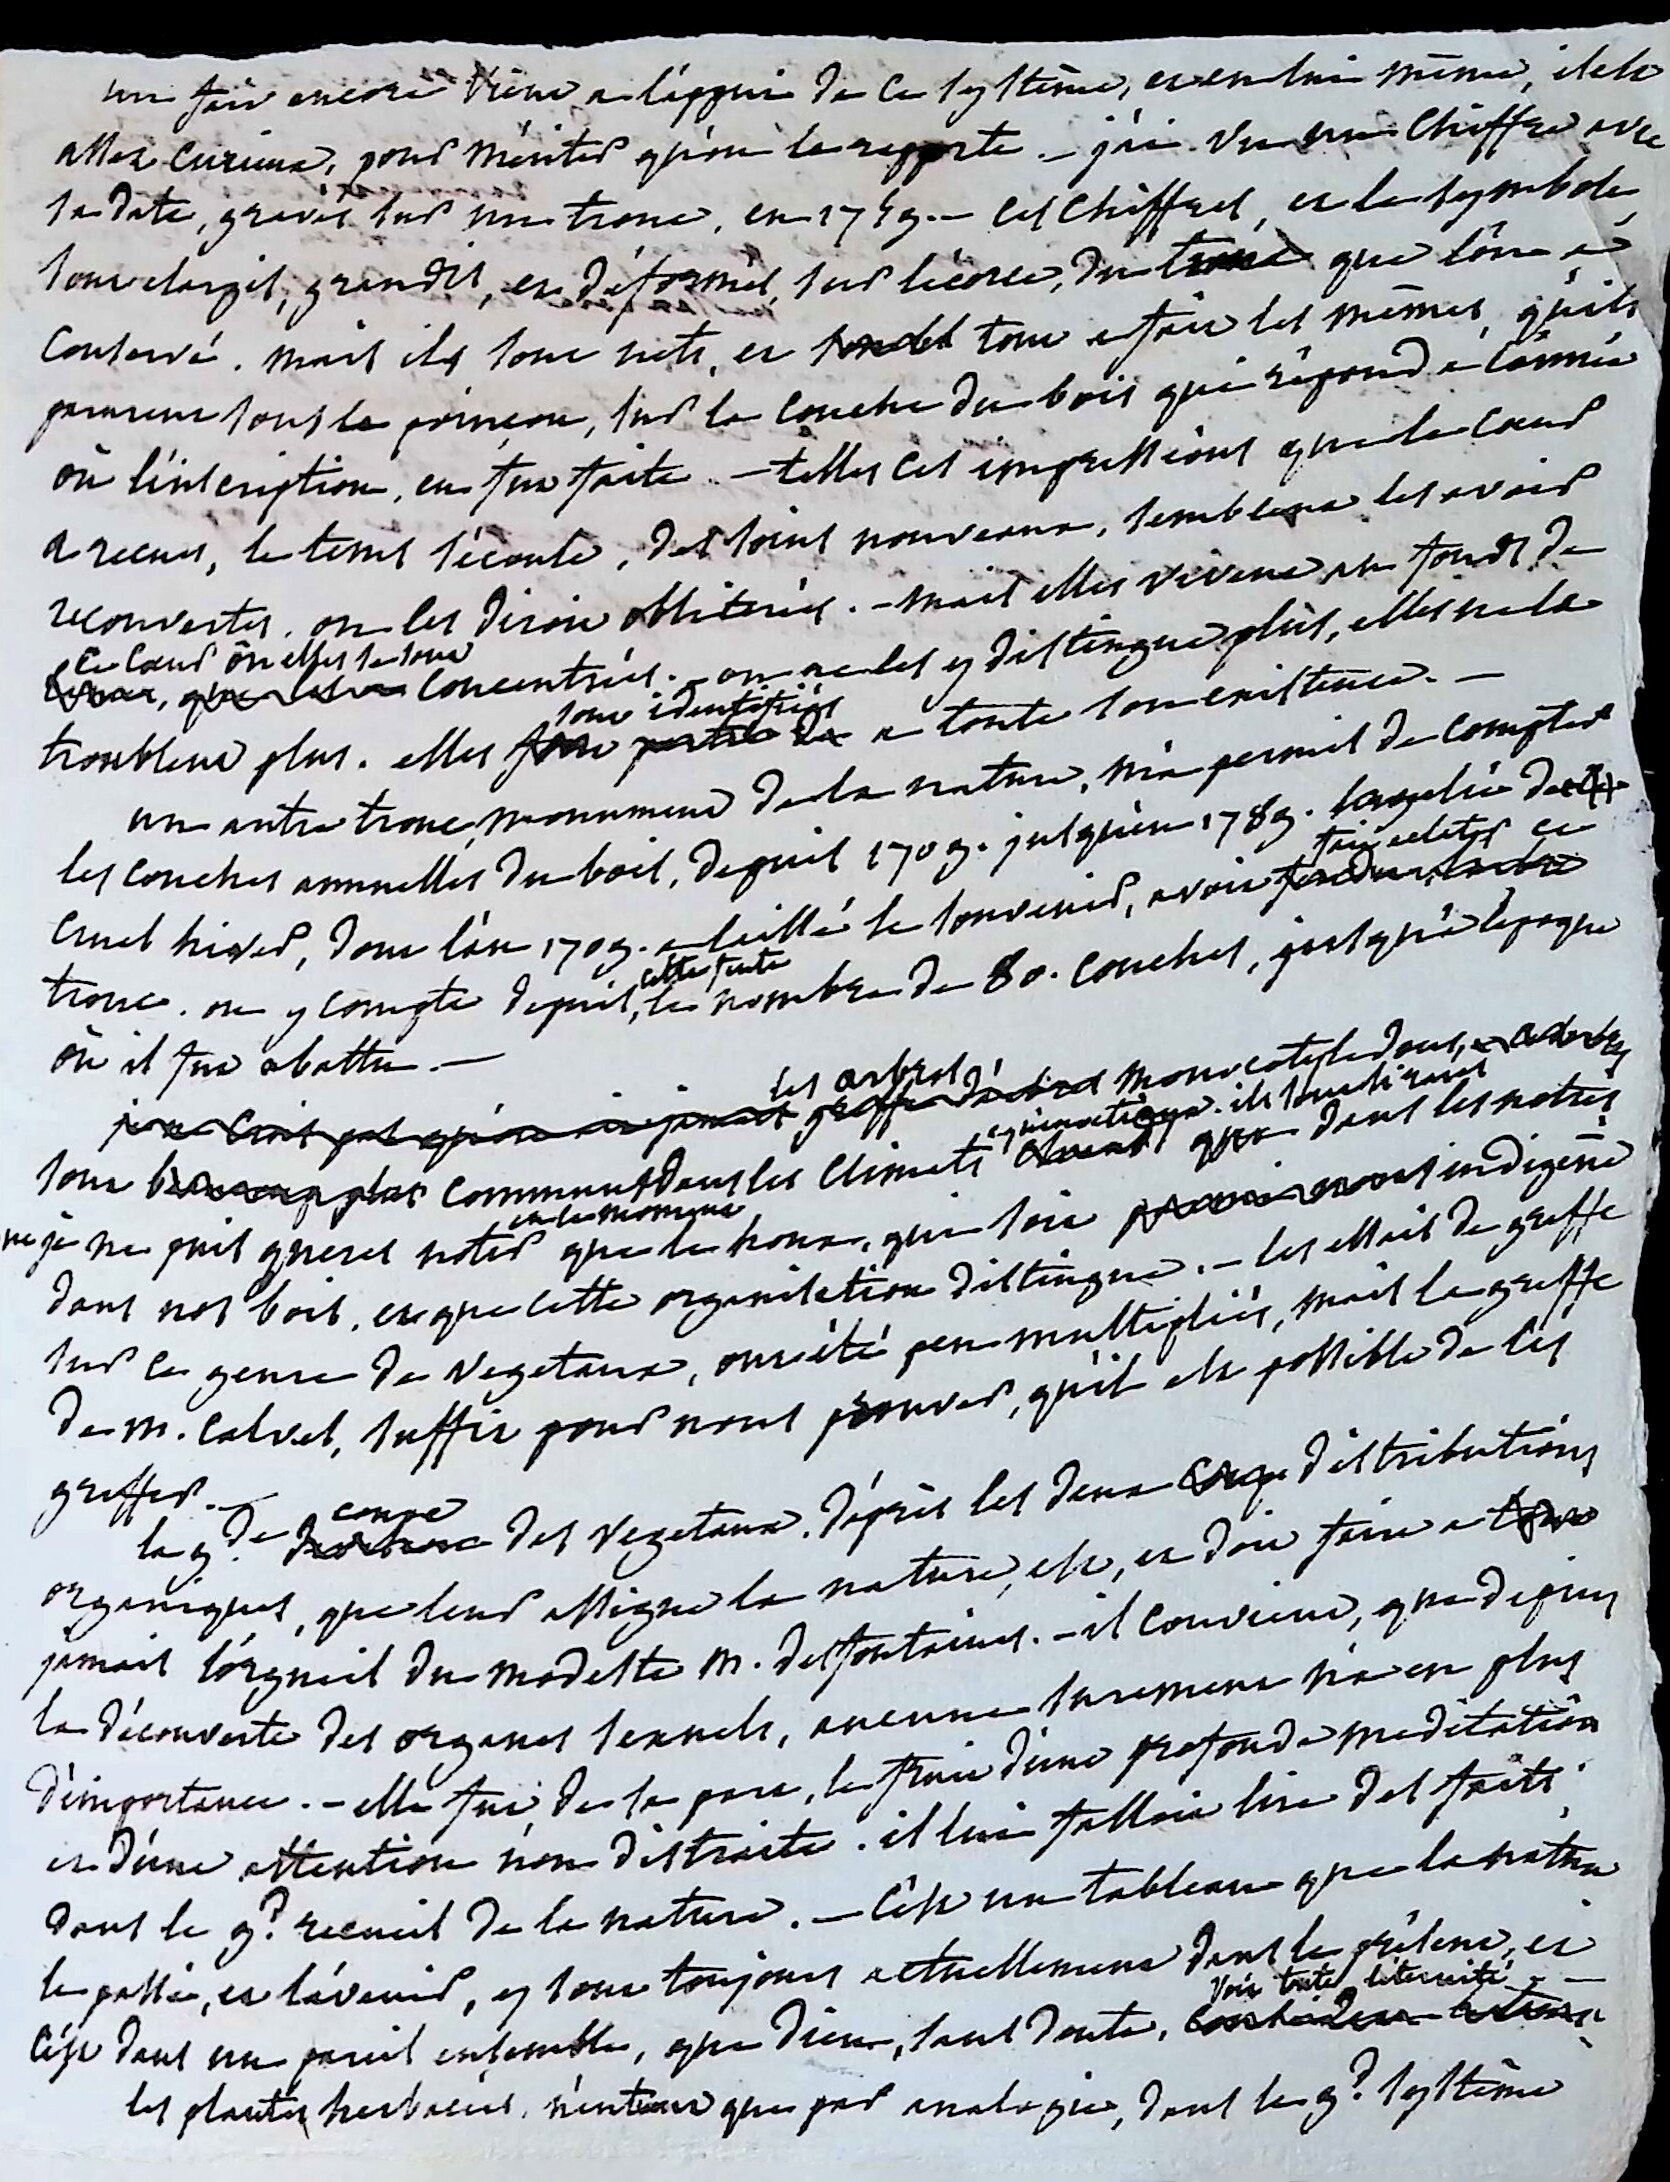 un fait encore vient a l'appui de ce systême, et en lui même, il est
assez curieux, pour mériter qu'on le rapporte. – j'ai vu un chiffre avec
sa date, gravés sur un tronc, en 1759. – ces chiffres, et le symbole,
sont elargis, grandis, et déformés, sur l'écorce, du tronc que l'on a
conservé. mais ils sont nets, et tout a fait les mêmes, qu'ils
parurent sous le poinçon, sur la couche du bois qui répond a l'année
où l'inscription, en fut faite. – telles ces impressions que le cœur
a recues, le tems s'écoule, des soins nouveaux, semblent les avoir
recouvertes. on les diroit oblitérées. – mais elles vivent au fond de
ce cœur où elles se sont
concentrées. – on ne les y distingue plus, elles ne le
sont identifiées
troublent plus. elles font partie de a toute son existence. –
un autre tronc, monument de la nature, m'a permis de compter
les couches annuelles du bois, depuis 1709. jusqu'en 1789. la gelée de
fait eclater ce
cruel hiver, dont l'an 1709. a laissé le souvenir, avoit fendu l'arbre
cette fente
tronc. on y compte depuis, le nombre de 80. couches, jusqu'à l'epoque
où il fut abattu. –
les arbres
je ne crois pas qu'on ait jamais greffé d'arbres monocotyledons,
equinoctiaux. ils sont si rares
sont beaucoup plus communs dans les climats chauds que dans les notres
en ce moment
que je ne puis gueres noter que le houx, qui soit indigene
dans nos bois, et que cette organisation distingue. – les essais de greffe
sur ce genre de vegetaux, ont été peu multipliés, mais la greffe
de m. calvel, suffit pour nous prouver, qu'il est possible de les
greffer. –
coupe
la gde des vegetaux, d'après les deux distributions
organiques, que leur assigne la nature, est, et doit faire a
jamais l'orgueil du modeste m. desfontaines. – il convient, que depuis
la découverte des organes sexuels, aucune surement n'a eu plus
d'importance. – elle fut, de sa part, le fruit d'une profonde meditation
et d'une attention non distraite. il lui falloit lire des faits,
dans le gd recueil de la nature. – c'est un tableau que la nature
le passé, et l'avenir, y sont toujours actuellement dans le présent, et
voit toute l'eternité. –
c'est dans un pareil ensemble, que dieu, sans doute,
les plantes herbacées, n'entrent que par analogie, dans le gd systême